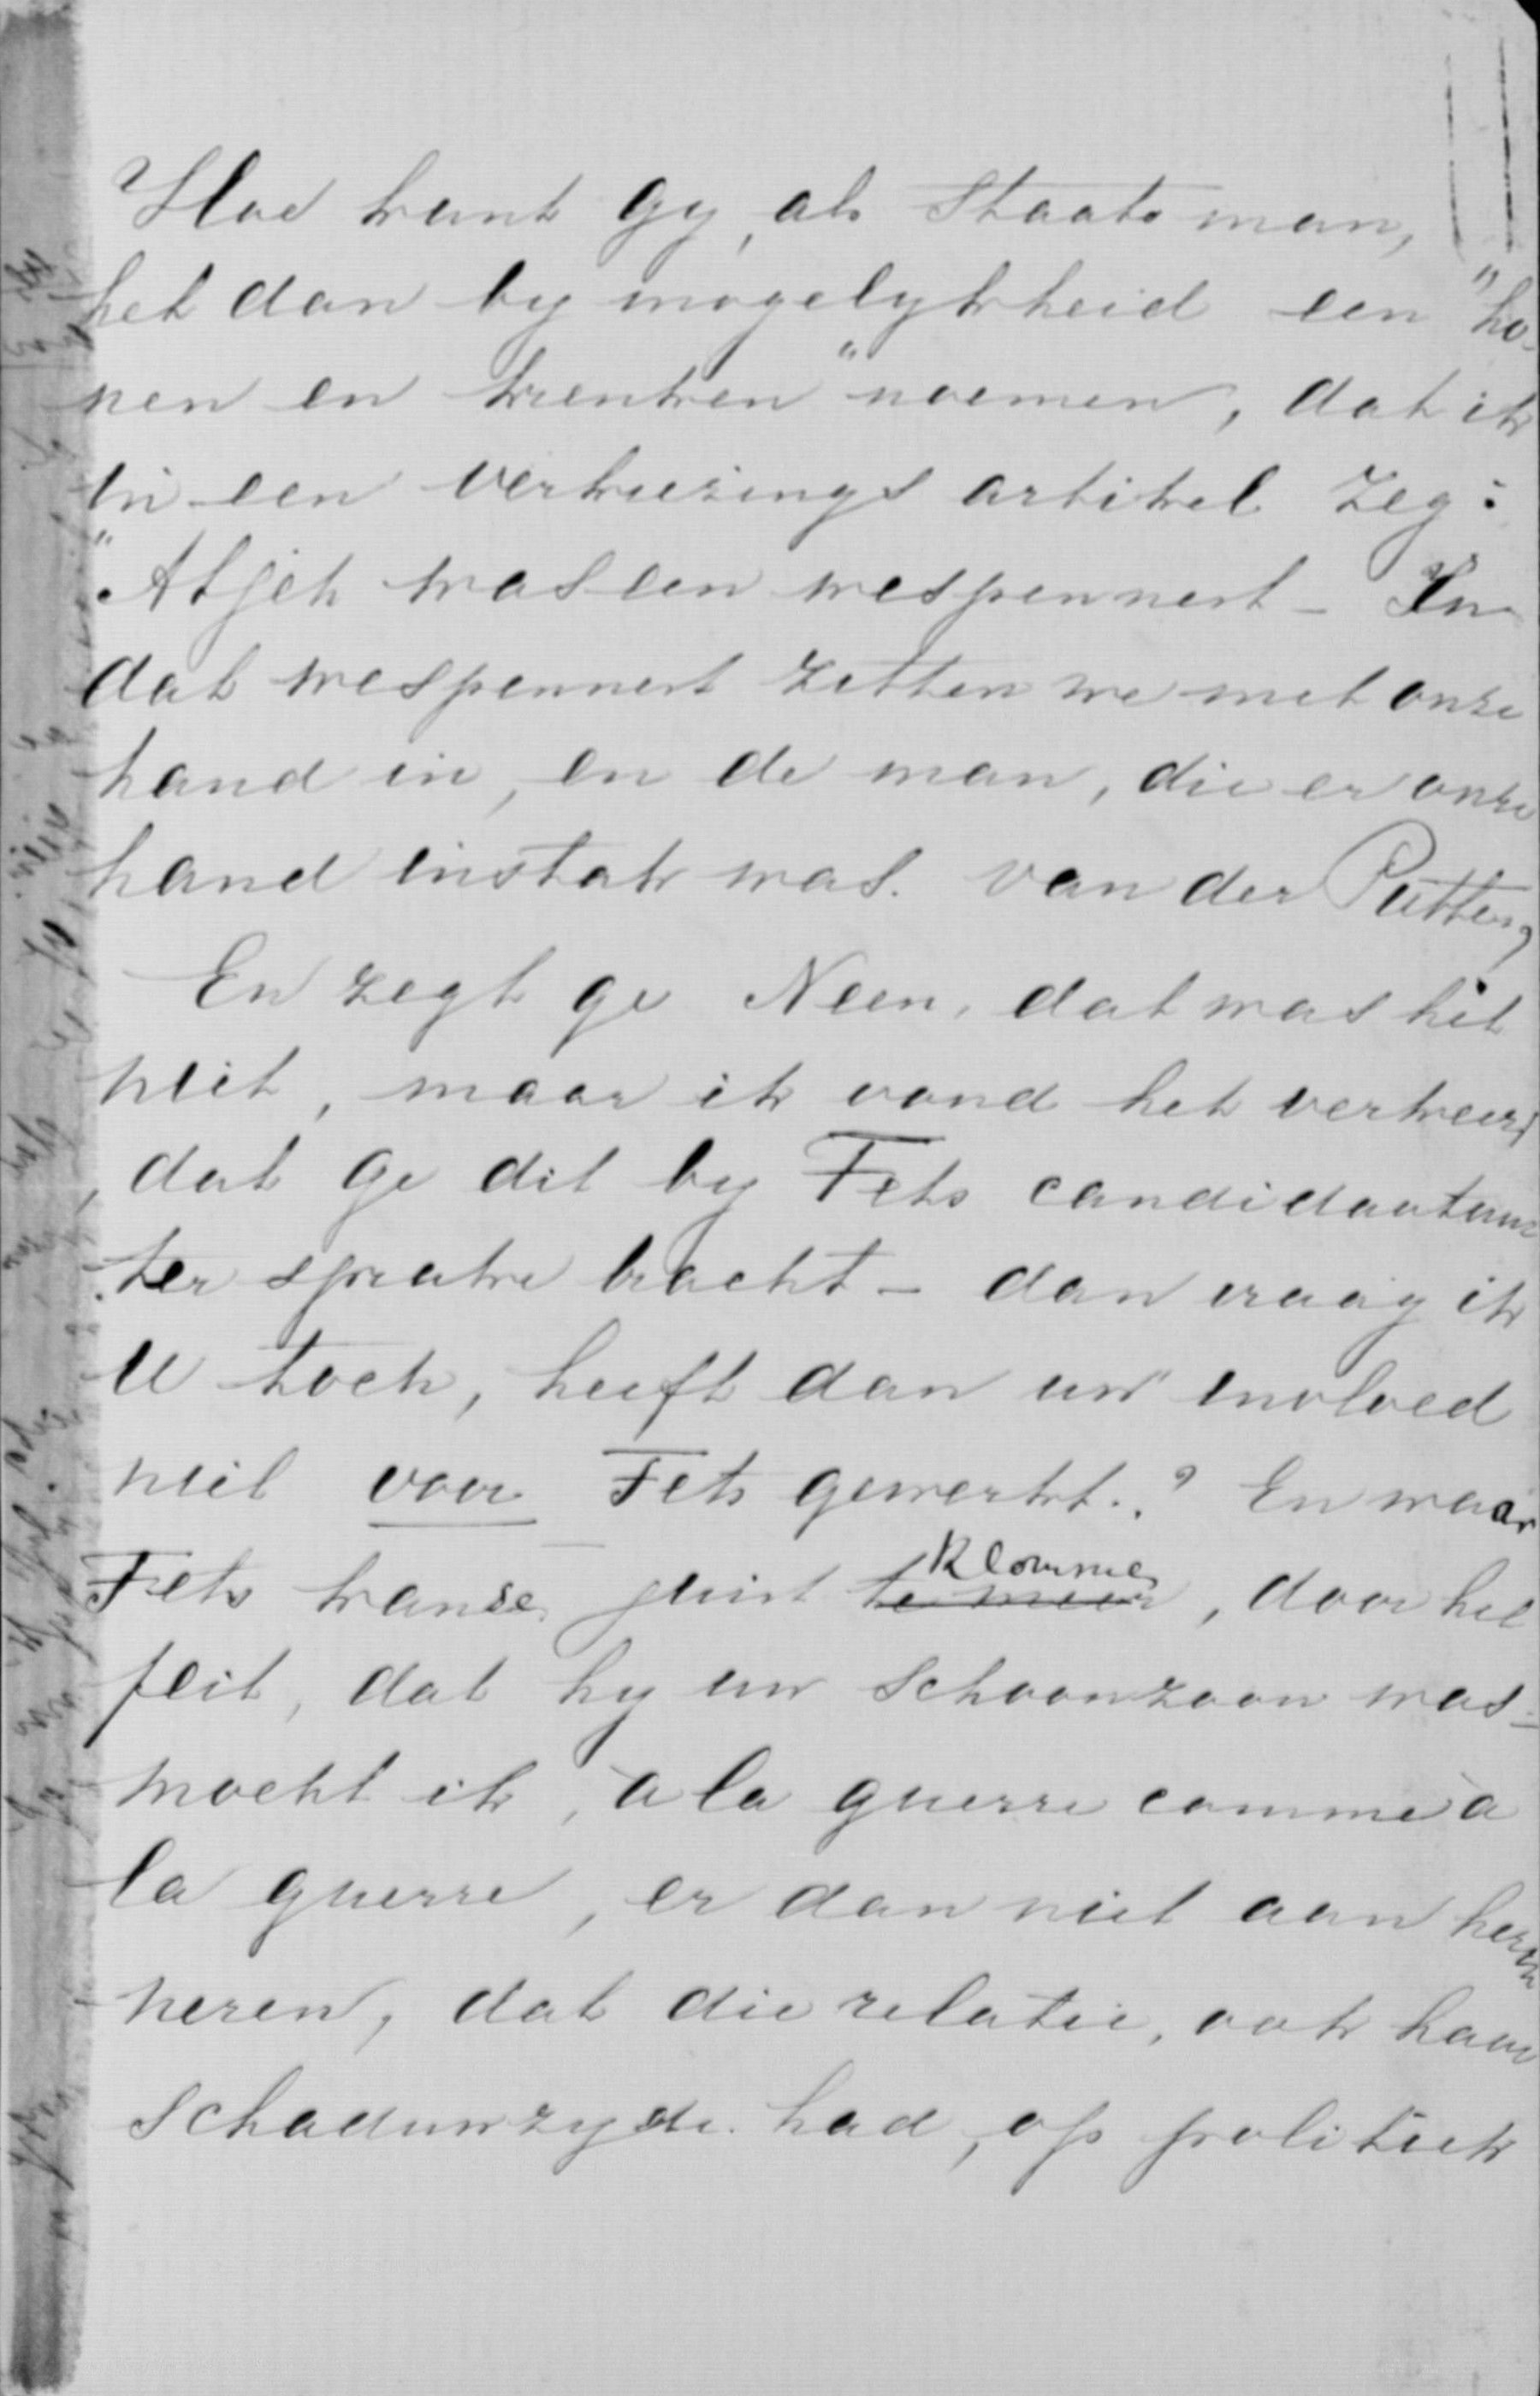 Hoe kunt gy, als Staatsman,
het dan by mogelykheid een "ho-
nen en krenken" noemen, dat ik
in een verkiezings artikel zeg:
"Atjeh was een wespennest – In
dat wespennest zetten we met onze
hand in, en de man, die er onze
hand instak was. van der Putten,
En zegt ge Neen, dat was het
niet, maar ik vond het verkeerd
dat ge dit by Fets candidatuur
ter sprake bracht – dan vraag ik
U toch, heeft dan uw invloed
niet voor Fets gewerkt.? En waar
Fets kanse juist klomme, door het
feit, dat hy uw schoonzoon was –
mocht ik, à la guerre comme à
la guerre, er dan niet aan herin
neren, dat die relatie, ook haar
schaduwzyde had, op politiek